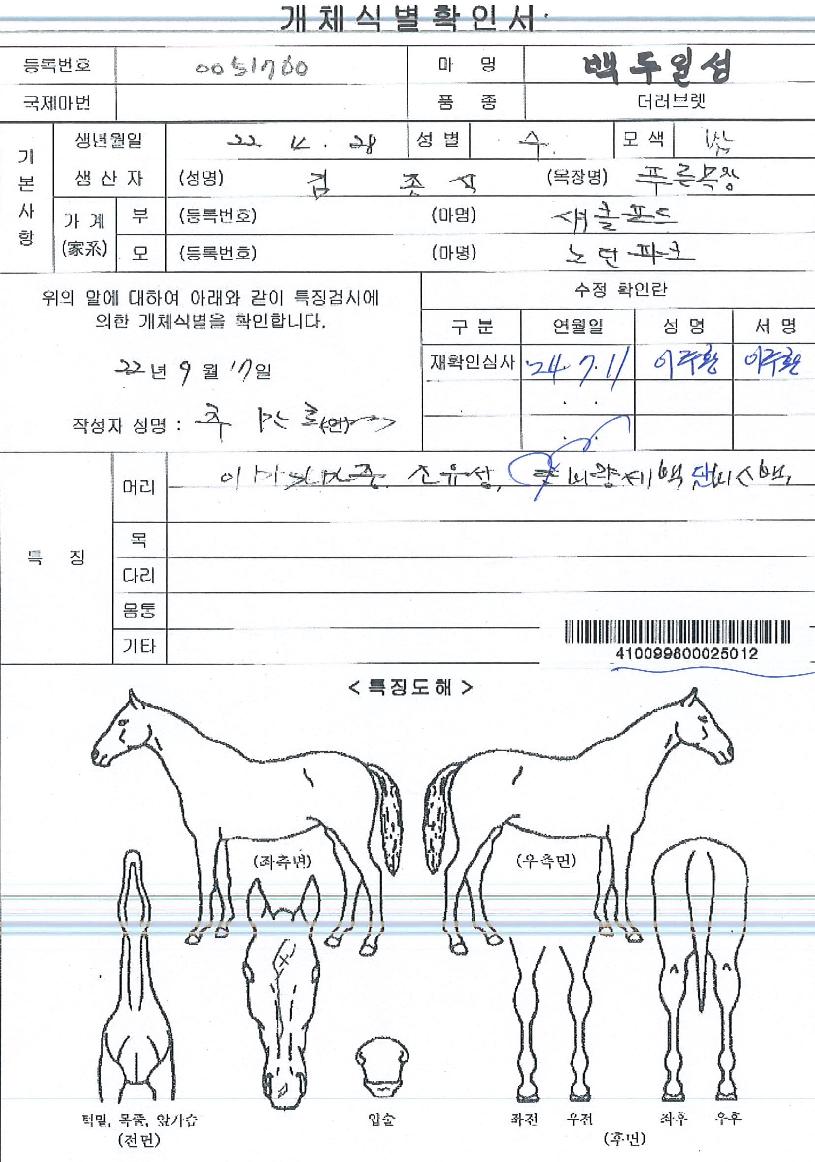 개체식별확인서
등록번호 0051760 마 명 백두일섬
국제마번 품 종 더러브렛
기본사항
생년월일 22. 4. 28 성별 수 모색
생산자 (성명) 김 존 석 (목장명) 푸른목장
가계(家系) 부 (등록번호) (마명) 섀클포드
모 (등록번호) (마명)
위의 말에 대하여 아래와 같이 특징검시에
의한 개체식별을 확인합니다.
22년 9월 17일
작성자 성명 : (인)
수정 확인란
구 분 연월일 성 명 서 명
재확인심사 '24. 7. 11 이주환 이주환
. .
. .
특 징
머리
목
다리
몸통
기타
410099800025012
< 특징도해 >
(좌측면) (우측면)
턱밑, 목줄, 앞가슴 입술 좌전 우전 좌후 우후
(전면) (후면)